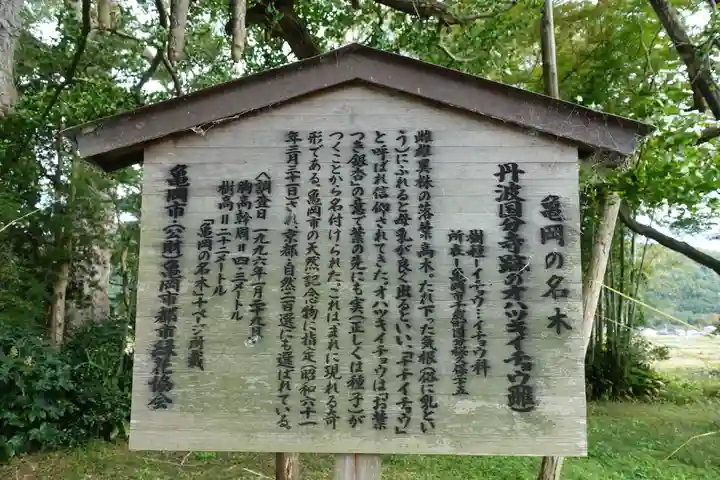 亀岡の名木
丹波国分寺跡のオハツキイチョウ(雌)
樹種=イチョウ…イチョウ科
所在=亀岡市千歳町国分
雌雄異株の落葉高木。たれ下った気根(俗に乳とい
う)にふれると母乳が良く出るといい、「チチイチョウ」
と呼ばれ信仰されてきた。オハツキイチョウは「お葉
つき銀杏」の意で葉の先にも実(正しくは種子)が
つくことから名付けられた。これは、まれに現れる奇
形である。亀岡市の天然記念物に指定(昭和六十一
年三月三十日)され、京都の自然二百選にも選ばれている。
(調査日 一九九六年一月二十七日)
胸高幹周=四・三メートル
樹高=二十二メートル
「亀岡の名木」十ページ所載
亀岡市・(財)亀岡市都市緑花協会